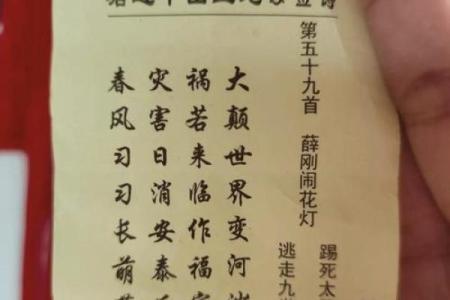 第五十九首 薛刚闹花灯
踢死太
逃走九
大颠世界变河
祸若来临作福
灾害日消安泰
春风习习长萌